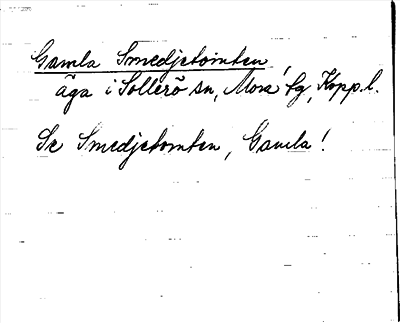 Gamla Smedjetomten,
äga i Sollerö sn, Mora tg, Kopp. l.
Se Smedjetomten, Gamla!